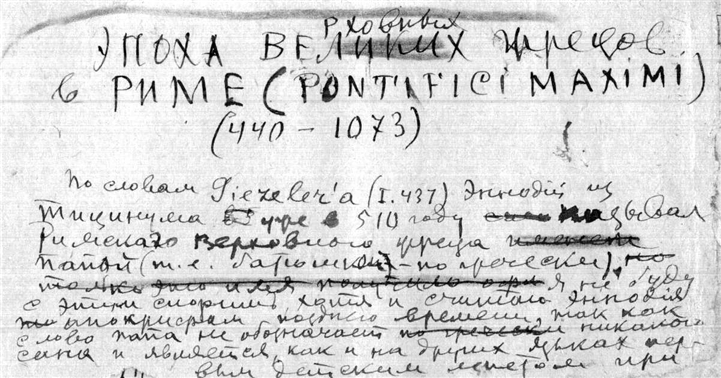 рховных
ЭПОХА ВЕЛИКИХ жрецов
в РИМЕ (PONTIFICI MAXIMI)
(440 - 1073)
По словам Giezeler'a (I.437) Эннодій из
Тицинума уже в 510 году называл
Римскаго верховного жреца именем
папой (т.е. батюшкой - по гречески), но
только это имя получило я не буду
с этим спорить хотя и считаю Эннодія
апокрифом поздняго времени, так как
слово папа не обозначает по гречески никакого
сана и является, как и на других языках пер-
вым детским при